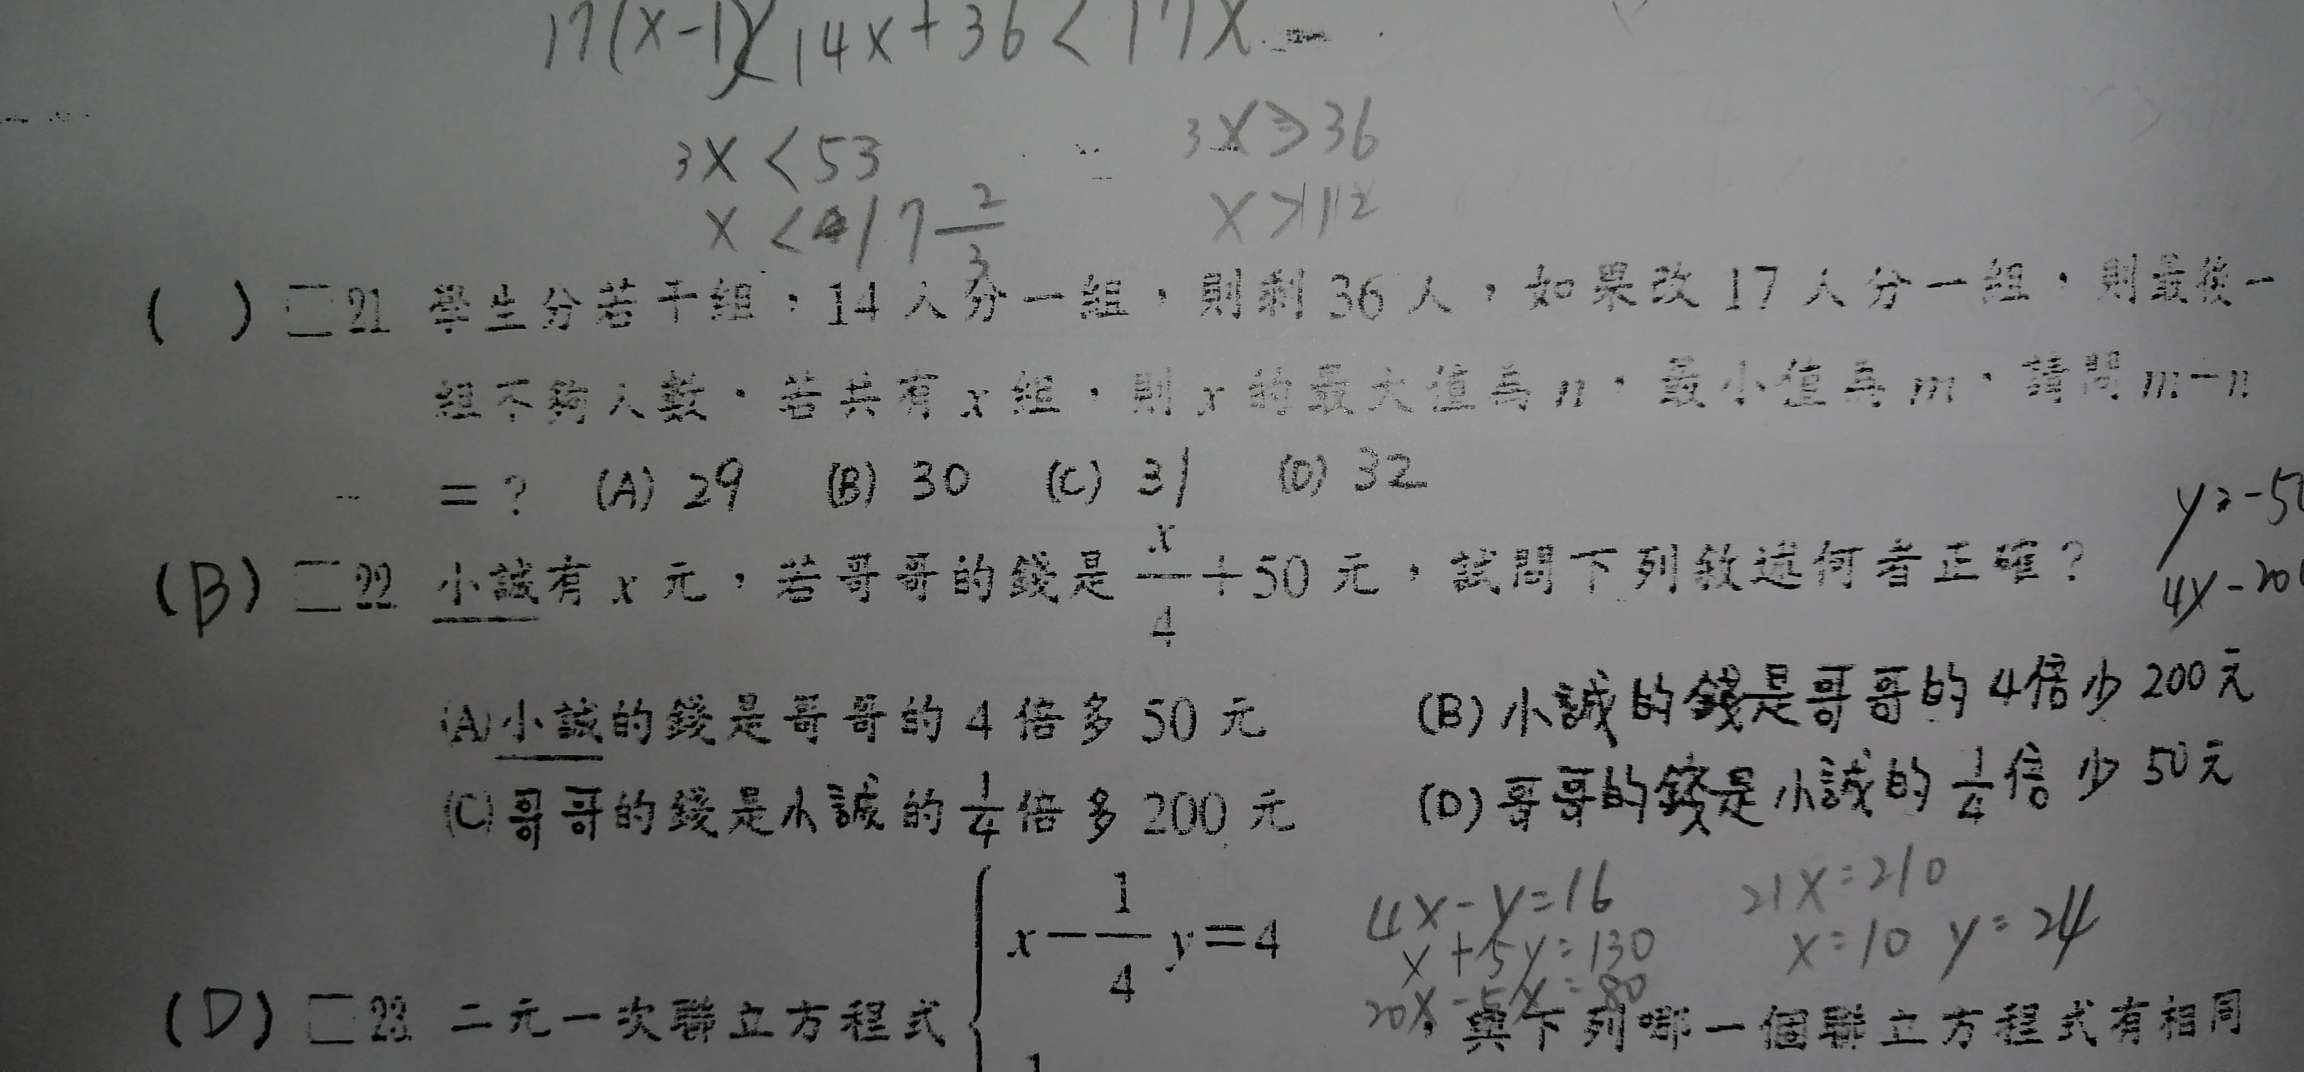 17(x-1)<14x+36<17x
3x<53 3x>36
x<17 2/3 x>12
( ) □21 學生分若干組，14人分一組，則剩36人，如果改17人分一組，則最後一
組不夠人數。若共有x組，則x的最大值為n，最小值為m，請問m-n
=? (A) 29 (B) 30 (C) 31 (D) 32
(B) □22 小誠有x元，若哥哥的錢是x/4+50元，試問下列敘述何者正確？
4y-200
(A)小誠的錢是哥哥的4倍多50元 (B)小誠的錢是哥哥的4倍少200元
(C)哥哥的錢是小誠的1/4倍多200元 (D)哥哥的錢是小誠的1/4倍少50元
x-1/4y=4 4x-y=16 21x=210
x+5y=130 x=10 y=24
20x-5y=80
(D) □23 二元一次聯立方程式，與下列哪一個聯立方程式有相同